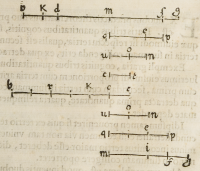 b K d m f g
q e p
u o n
c t
b r K c e
u o n
q e p
m i f g